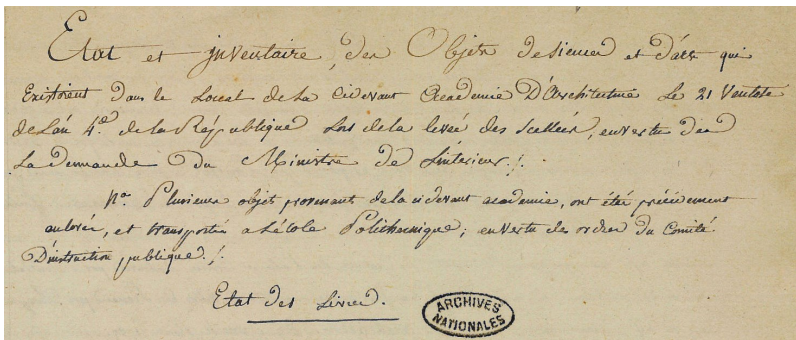 Etat et inventaire, des Objets de siences et d'arts qui
Existoient dans le Local de la cidevant Academie D'Architecture Le 21 Ventose
de L'an 4.e de la République Lors de la levée des scellées, en vertu de
La demande du Ministre de L'intérieur ./.
No. Plusieurs objets provenant de la cidevant académie, ont été précédement
enlevés, et transportés a L'école Politechnique; en vertu des ordres du Comité
D'instruction publique ./.
Etat des Livres.
ARCHIVES
NATIONALES